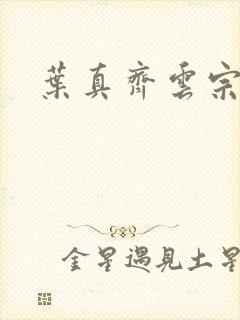 葉真齊雲宗
金星遇見土星